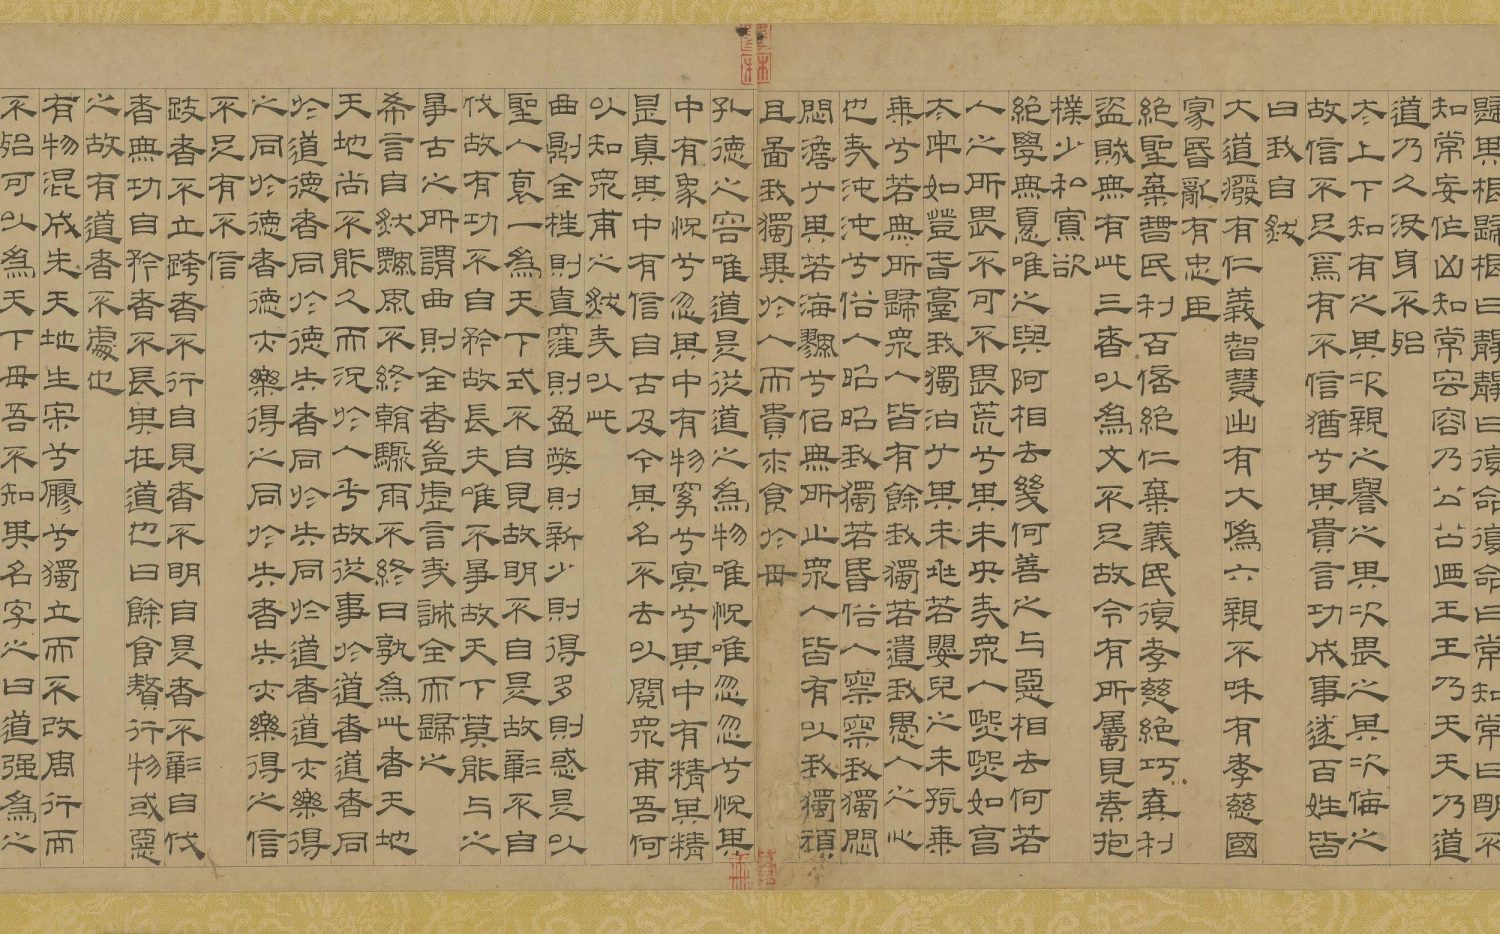 歸其根歸根曰靜靜曰復命復命曰常知常曰明不
知常妄作凶知常容容乃公公乃王王乃天天乃道
道乃久沒身不殆
太上下知有之其次親之譽之其次畏之其次侮之
故信不足焉有不信猶兮其貴言功成事遂百姓皆
曰我自然
大道癈有仁義智慧出有大偽六親不和有孝慈國
家昏亂有忠臣
絕聖棄智民利百倍絕仁棄義民復孝慈絕巧棄利
盜賊無有此三者以為文不足故令有所屬見素抱
樸少私寡欲
絕學無憂唯之與阿相去幾何善之与惡相去何若
人之所畏不可不畏荒兮其未央哉眾人熙熙如享
太牢如登春臺我獨泊兮其未兆若嬰兒之未孩乘
乘兮若無所歸眾人皆有餘我獨若遺我愚人之心
也哉沌沌兮俗人昭昭我獨若昏俗人察察我獨悶
悶澹兮其若海飂兮似無所止眾人皆有以我獨頑
且啚我獨異於人而貴求食於母
孔德之容唯道是從道之為物唯怳唯忽忽兮怳其
中有象怳兮忽其中有物窈兮冥兮其中有精其精
是真其中有信自古及今其名不去以閱眾甫吾何
以知眾甫之然哉以此
曲則全枉則直窪則盈弊則新少則得多則惑是以
聖人裒一為天下式不自見故明不自是故彰不自
伐故有功不自矜故長夫唯不爭故天下莫能与之
爭古之所謂曲則全者豈虛言哉誠全而歸之
希言自然飄風不終朝驟雨不終日孰為此者天地
天地尚不能久而況於人乎故從事於道者道者同
於道德者同於德失者同於失同於道者道亦樂得
之同於德者德亦樂得之同於失者失亦樂得之信
不足有不信
跂者不立跨者不行自見者不明自是者不彰自伐
者無功自矜者不長其在道也曰餘食贅行物或惡
之故有道者不處也
有物混成先天地生寂兮寥兮獨立而不改周行而
不殆可以為天下母吾不知其名字之曰道强為之